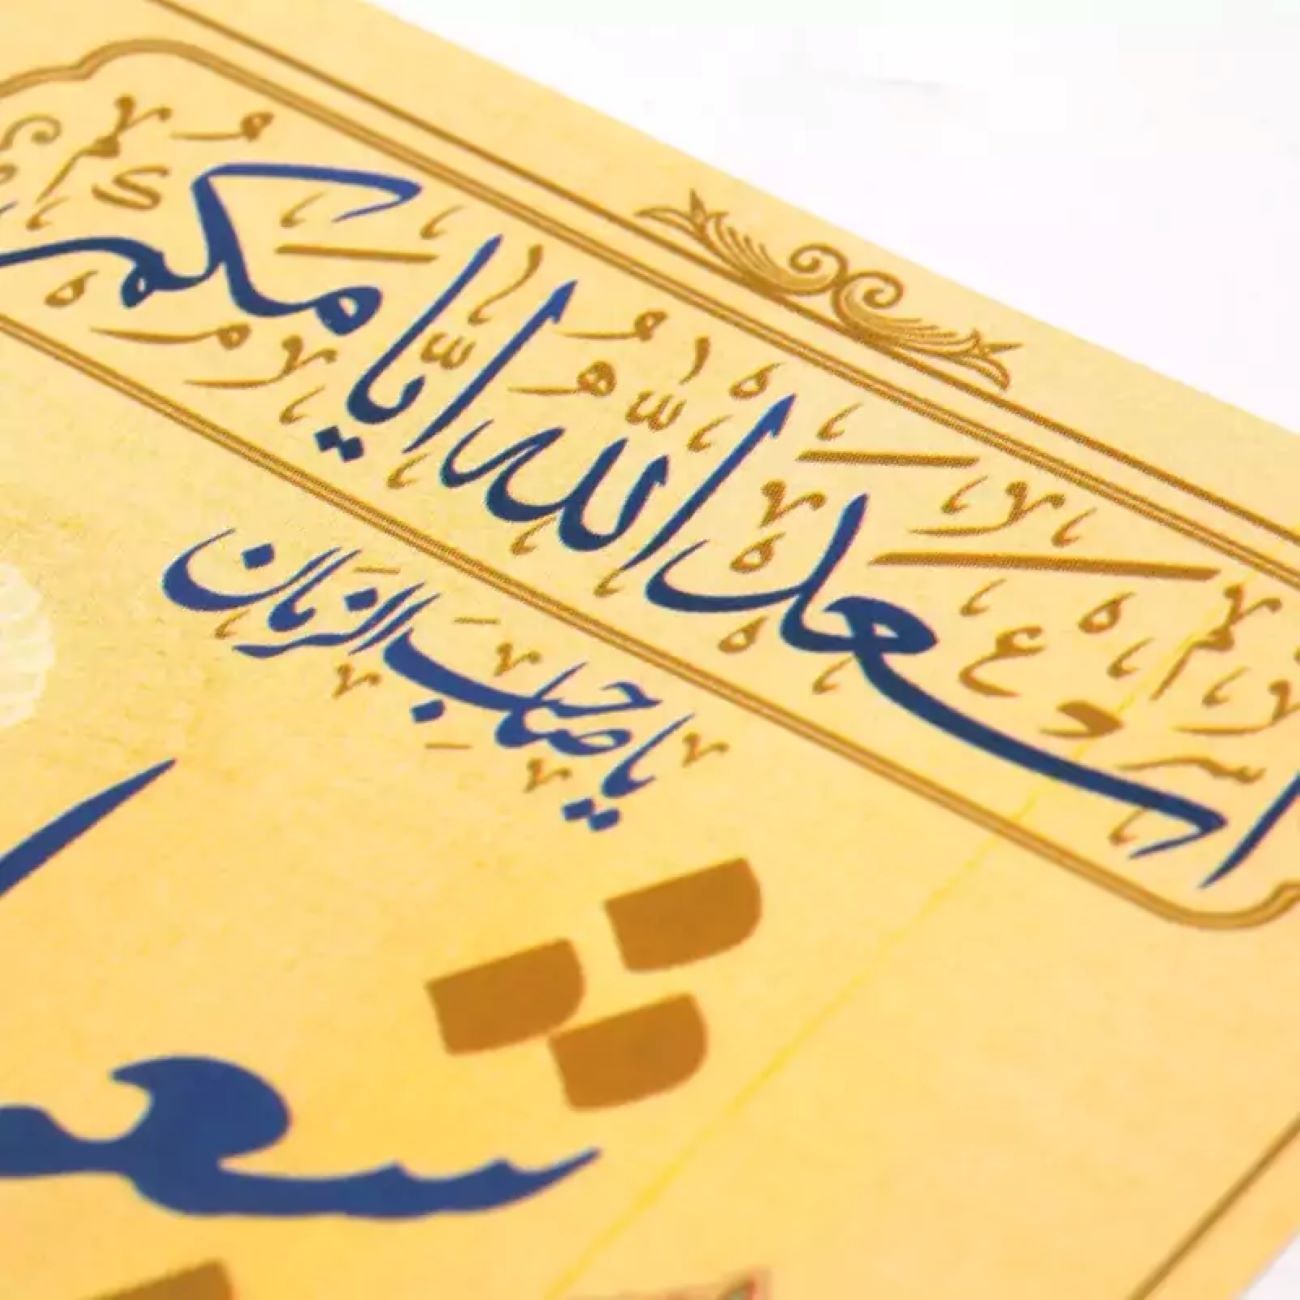 اسعد الله ایامکم
یا صاحب الزمان